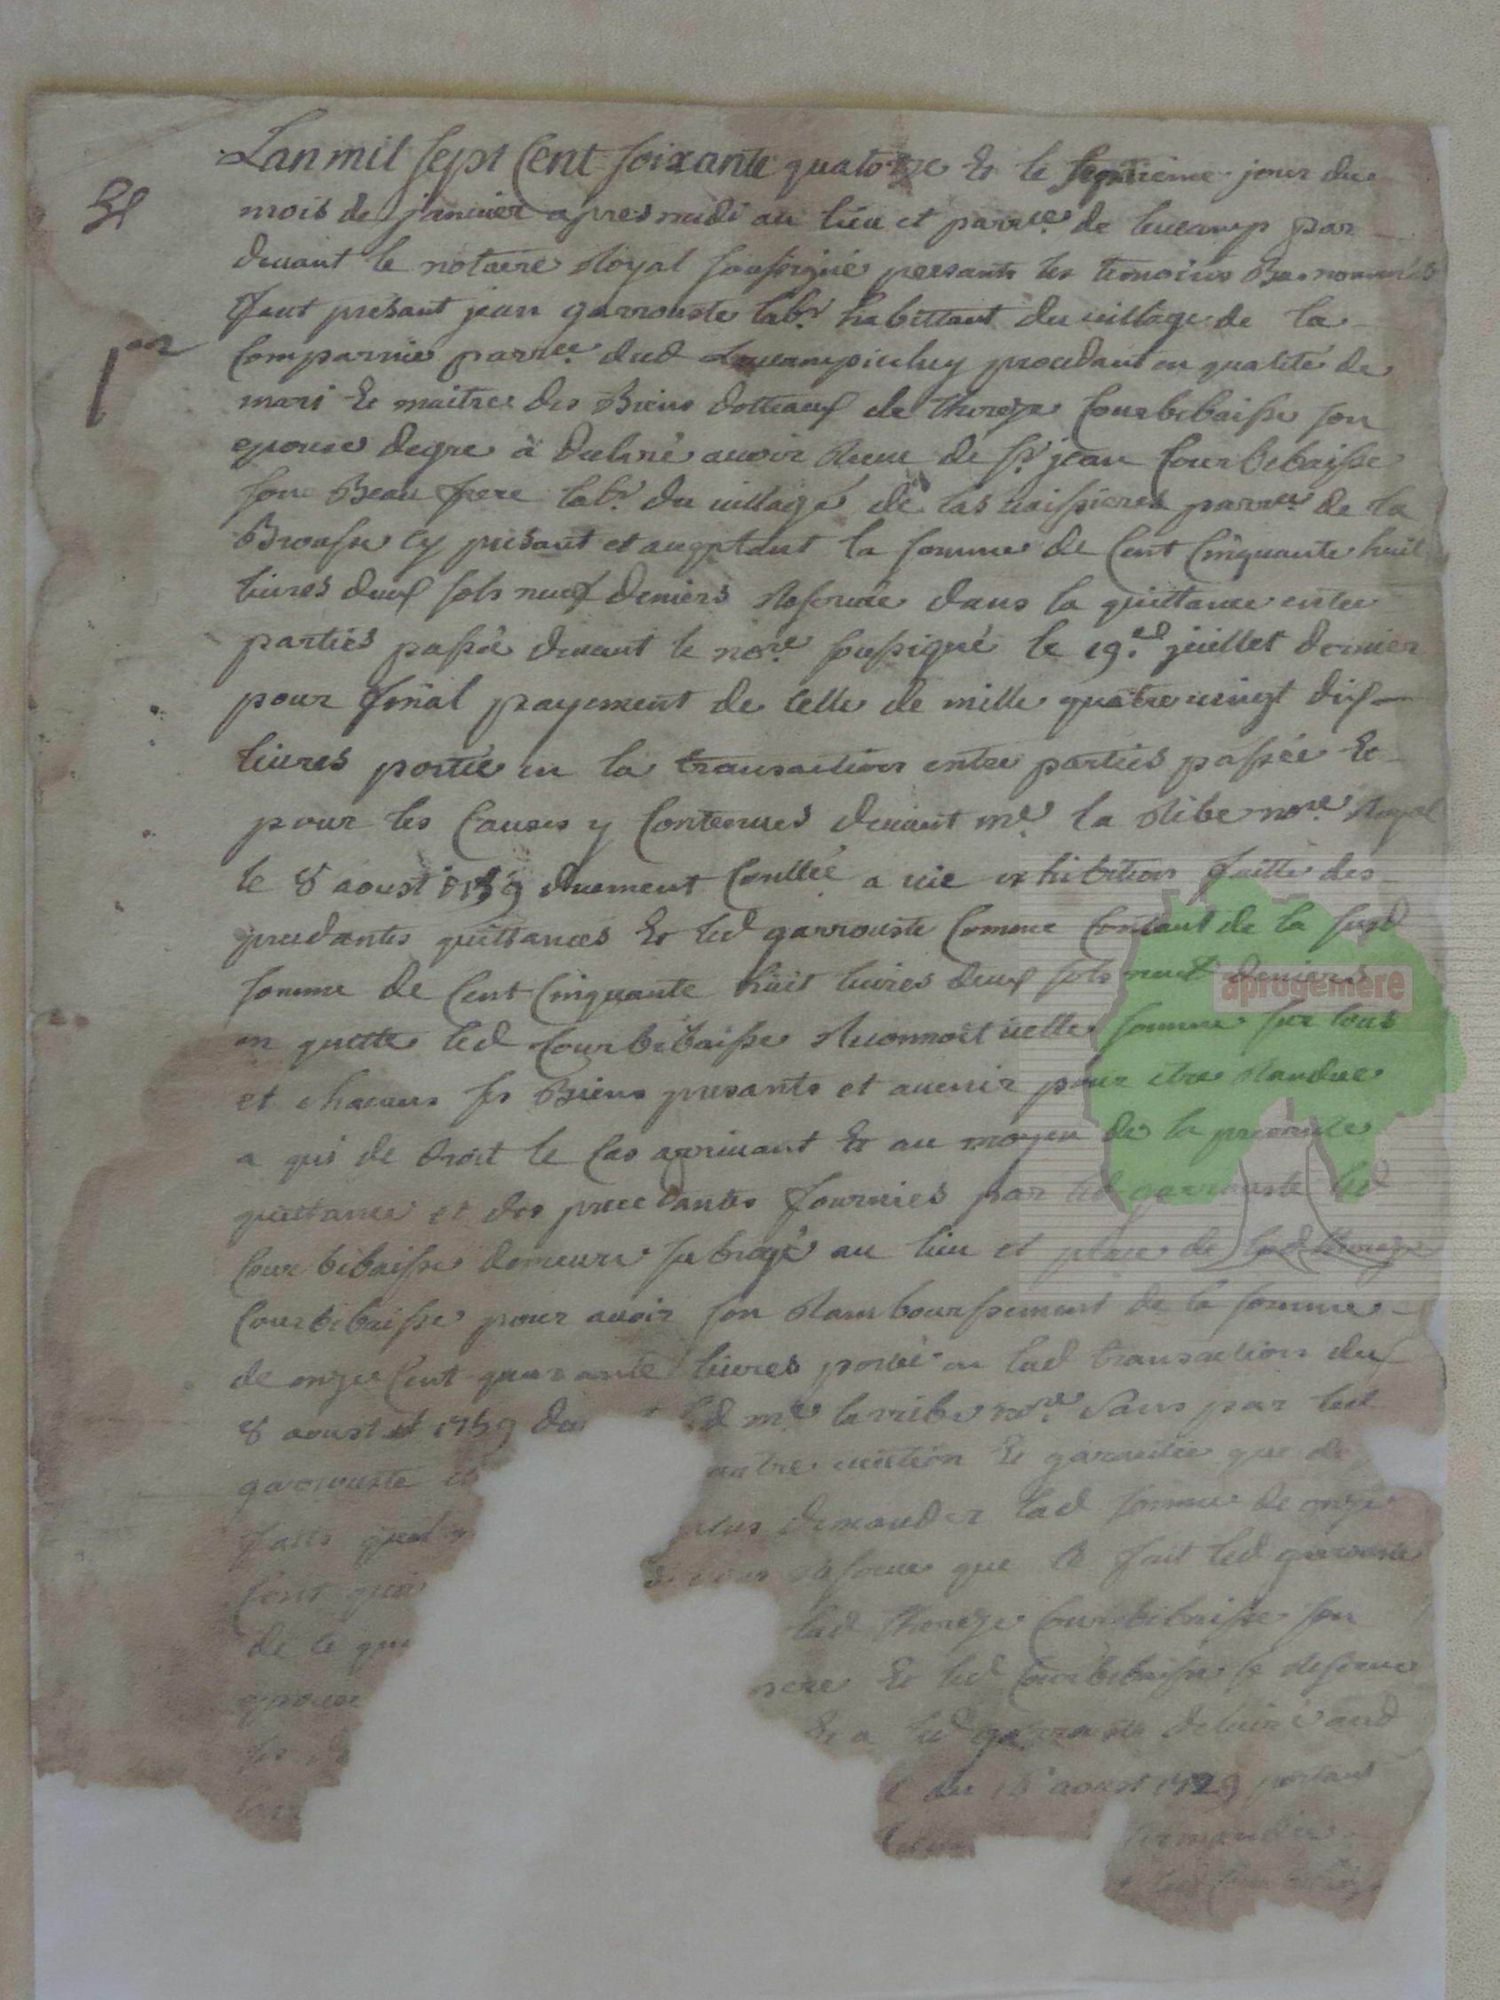 Lan mil sept Cent soixante quatorze & le septieme jour du
mois de janvier apres midi au lieu et parr.ce de leucamp par
devant le notaire Royal soussigné presants les temoins Bas nommés
fut presant jean garrouste lab.r habittant du village de la
parr.ce dud Leucamp procedant en qualité de
mari & maitre des Biens dotteaux de therese Courbebaisse son
epouse degre à declaré avoir Receu de S.r jean Courbebaisse
son Beau frere lab.r du village de las vaissieres parr.ce de la
Brousse cy presant et aceptant la somme de Cent Cinquante huit
livres deux sols neuf deniers Reservée dans la quittance entre
parties passée devant le no.re soussigné le 19.e juillet dernier
pour final payement de celle de mille quatre vingt dix
livres portée en la transaction entre parties passée &
pour les Causes y Contenues devant m.e la Ribe no.re Royal
le 8 aoust 1759 duement Conllée a vie exhibition faitte des
precedantes quittances & led garrouste Comme Contant de la susd
somme de Cent Cinquante huit livres deux sols neuf deniers
en quitte led Courbebaisse Reconnoit icelle somme sur tous
et chacuns ses Biens presants et avenir pour etre Randue
a qui de droit le Cas arrivant & au moyen de la presente
quittance et des precedantes fournies par led garrouste led
Courbebaisse demeure subrogé au lieu et place de lad therese
Courbebaisse pour avoir son Rambourssement de la somme
de onze Cent quarante livres portée en lad transaction du
8 aoust 1759 led m.e larribe no.re sans par led
garrouste autre eviction & garantie que de
faits demander lad somme de onze
sent reserve que le fait led garrouste
de ce que lad therese Courbebaisse son
epouse pere & led Courbebaisse se Reserve
& a led garrouste declaré aud
du 16 aoust 1729 portant
demander